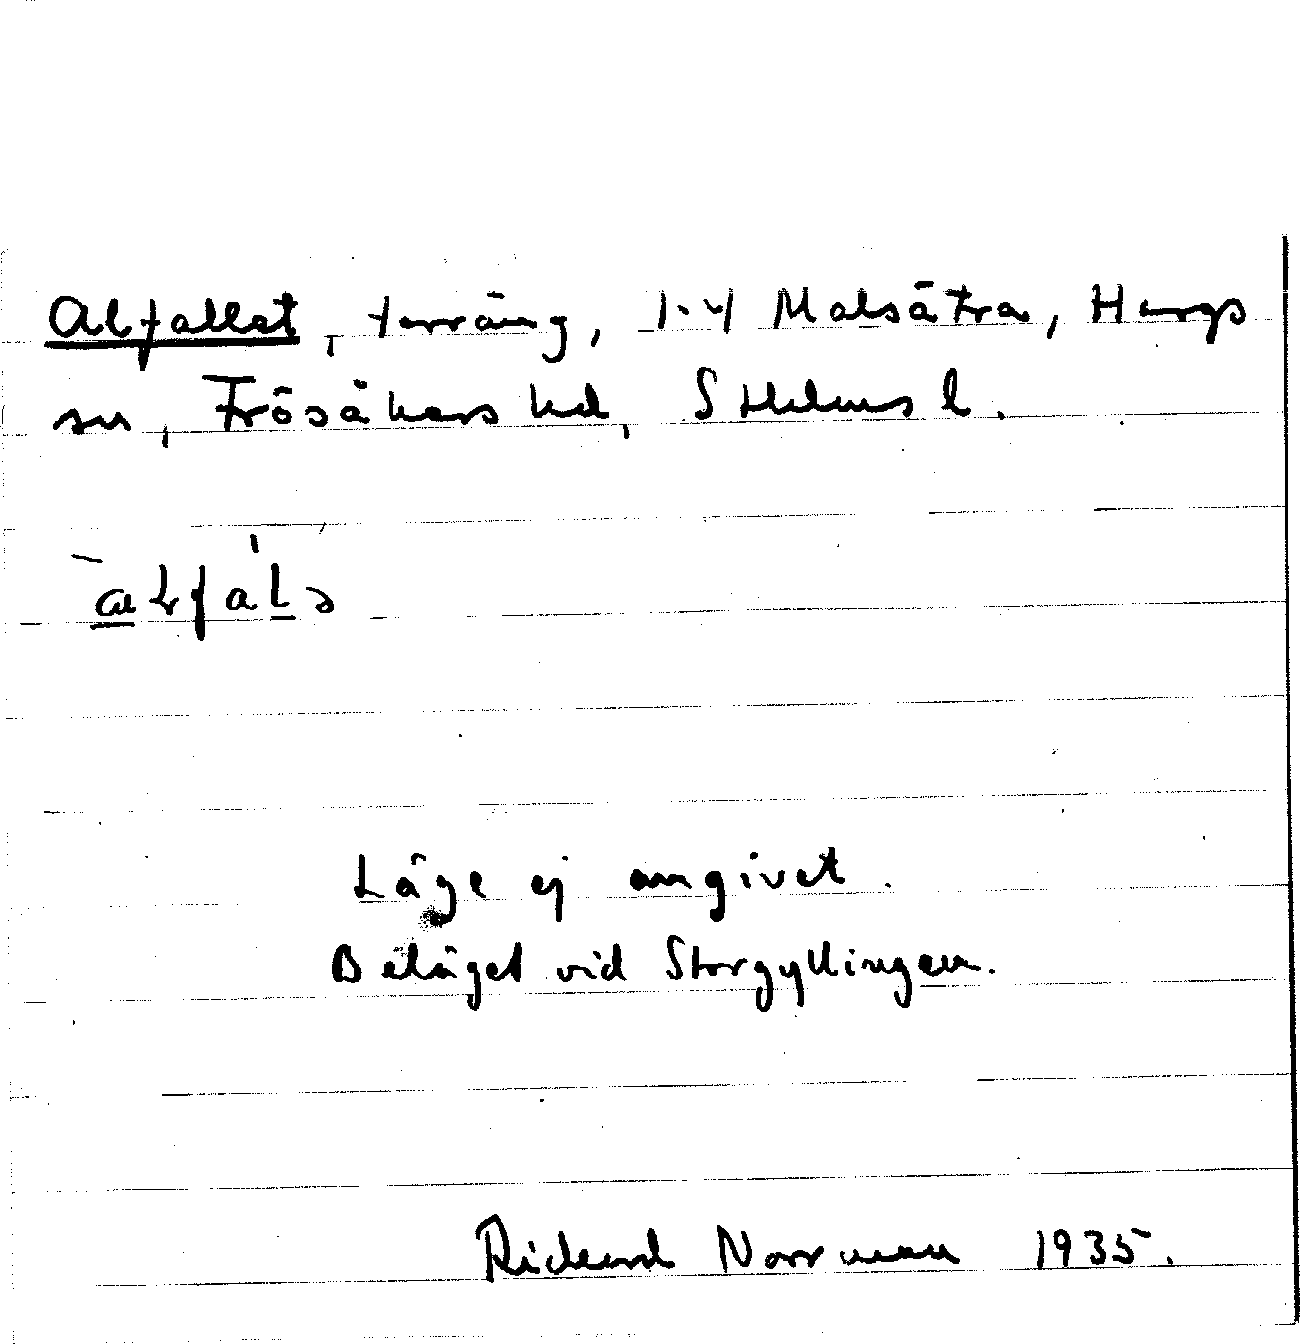 Alfallet, terräng, 1-4 Malsätra, Hargs
sn, Frösåkers hd, Sthlms l.
Läge ej angivet.
Beläget vid Storgyllingen.
Richard Norrman 1935.